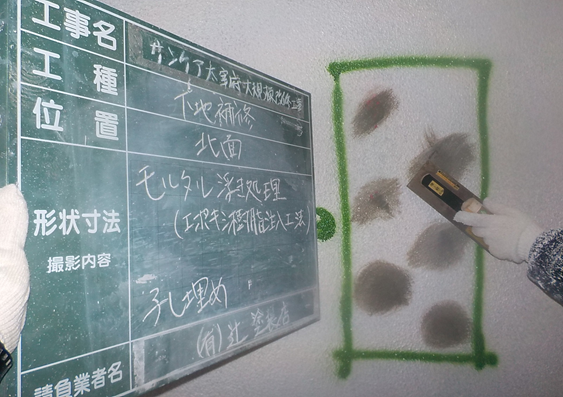 工事名
サンケア太宰府大規模改修工事
工種
下地補修
位置
北面
モルタル浮き処理
(エポキシ樹脂注入工法)
形状寸法
撮影内容
孔埋め
(有)辻塗装店
請負業者名